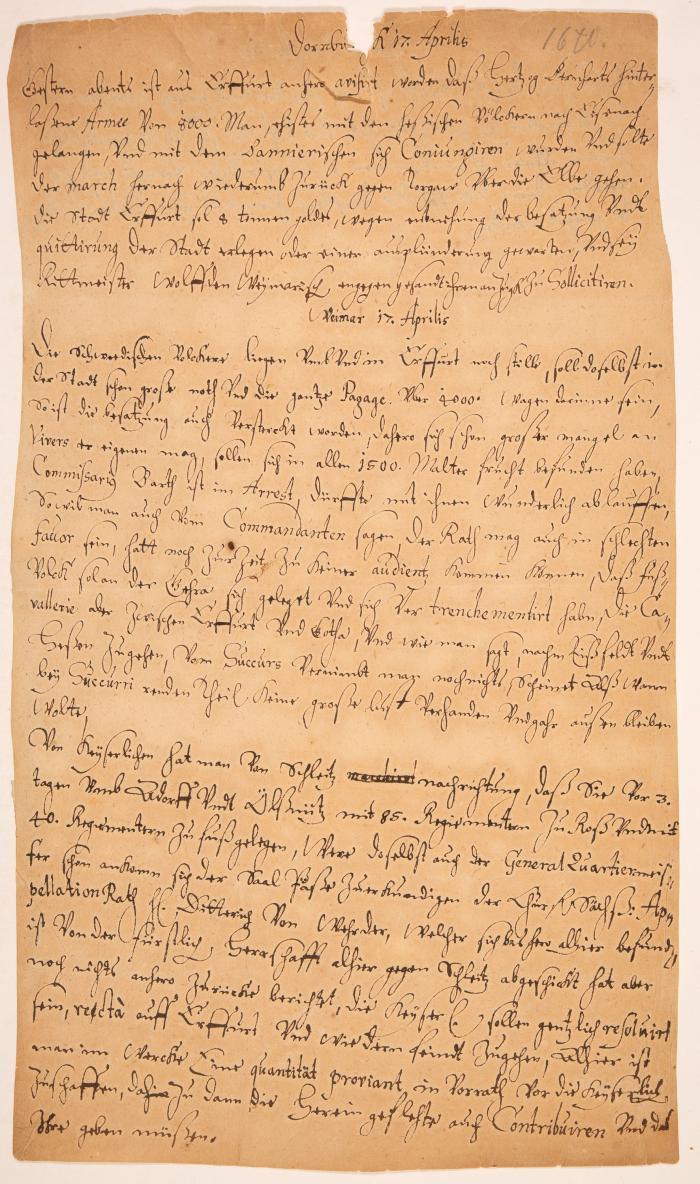 Dornbu K 17. Aprilis 1640.
Gestern abents ist aus Erffurt anhero avisirt worden daß Hertzog Bernharts hinter-
laßene Armee von 8000. Man, theils mit den heßischen Völckern nach Eisenach
gelangen, Vnd mit dem Bannierischen sich Coniungiren würden Vnd solte
der march hernach wiederumb zurück gegen Torgaw Vber die Elbe gehen.
die Stadt Erffurt sol 8 tonnen goldes, wegen der besatzung Vndt
quittirung der Stadt erlegen oder einer ausplünderung gewarten, Vnd sey
Rittmeister Wolff den Weymarisch. entgegen gesandt zu Sollicitiren.
Weimar 17. Aprilis
Die Schwedischen Völckere liegen Vmb Vnd in Erffurt noch stille, soll doselbst in
der Stadt schon große noth Vnd die gantze Pagage. Vber 4000. Wagen darinne sein,
So ist die besatzung auch Verstercket worden, dahero sich schon großer mangel an
Vivers er eigenen mag, sollen sich in allen 1500. Malter frucht befunden haben,
Commissarius Barth ist im Arrest, dürffte mit ihnen wunderlich ablauffen,
So wil man auch Vom Commandanten sagen, der Rath mag auch in schlechten
fauor sein, hatt noch zur Zeit zu keiner audientz kommen können, daß fuß-
Volck sol an der Gehra sich geleget Vnd sich Ver trenchementirt habn, die Ca-
vallerie aber zwischen Erffurt Vnd Gotha, Vnd wie man sagt, nachm Eißfeldt Vndt
Heßen zugehen, Vom Succurs Vernimbt man noch nichts, Scheinet Alß wann
bey Succurri renden theil keine große lust Verhanden Vnd gahr außen bleiben
wolte,
Von Keyserlichen hat man Von Schleitz nachrichtung, daß Sie Vor 3.
tagen Vmb Adorff Vndt Ölßnitz mit 85. Regimentern zu Roß Vnd mit
40. Regimentern zu fuß gelegen, Were doselbst auch der General Quartiermeis-
ter schon ankomm sich der Saal Päße zuerkundigen der Churf. Sächß: Ap-
pellation Rath H. Ditterich Von Wehrder, welcher sich bis hero alhier befund,
ist Von der fürstlich. Herrschafft alhier gegen Schleitz abgeschickt hat aber
noch nichts anhero zurücke berichtet, die Keyserl. sollen gentzlich resoluirt
sein, rectà auff Erffurt Vnd wie dem feindt zugehen, Alhier ist
man im Wercke Eine quantität proviant, in Vorrath Vor die Keyserlich.
zuschaffen, dahin zu dann die Herein geflehte auch Contribuiren Vnd das
Ihre geben müßen.